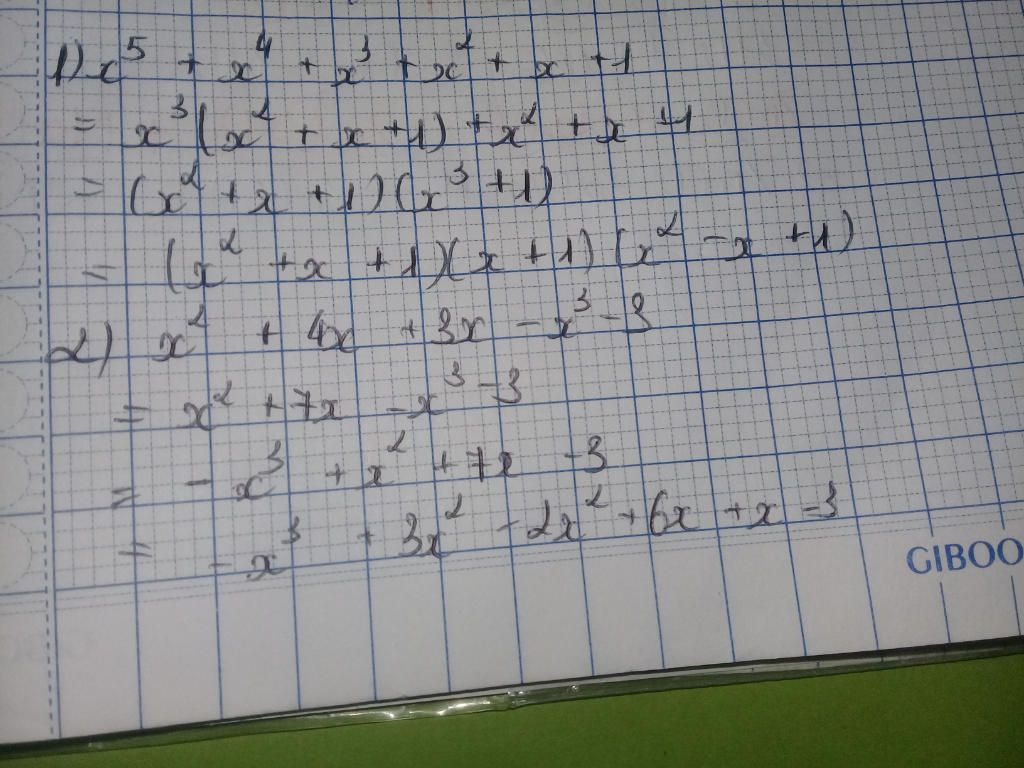 1) x⁵ + x⁴ + x³ + x² + x + 1
= x³(x² + x + 1) + x² + x + 1
= (x² + x + 1)(x³ + 1)
= (x² + x + 1)(x + 1)(x² - x + 1)
2) x² + 4x + 3x - x³ - 3
= x² + 7x - x³ - 3
= - x³ + x² + 7x - 3
= - x³ + 3x² - 2x² + 6x + x - 3
GIBOO